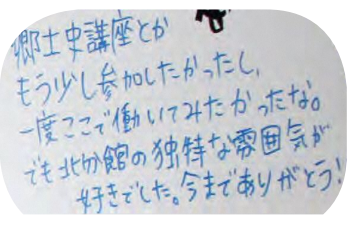 郷土史講座とか
もう少し参加したかったし、
一度ここで働いてみたかったな。
でも北分館の独特な雰囲気が
好きでした。今までありがとう!